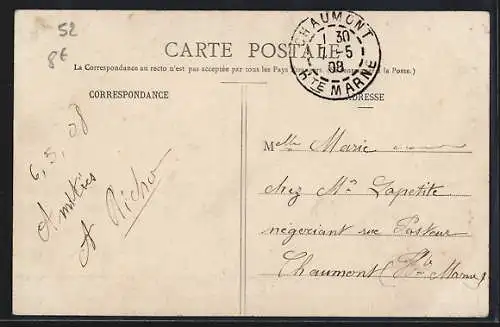 52
8€
CARTE POSTALE
(La Correspondance au recto n'est pas acceptée par tous les Pays la Poste.)
CHAUMONT
1 30
7-5
08
HTE MARNE
CORRESPONDANCE
ADRESSE
6, 5, 08
Amitiés
A Richo
Melle Marie
chez Mr Lapetite
négociant rue Pasteur
Chaumont (Hte Marne)